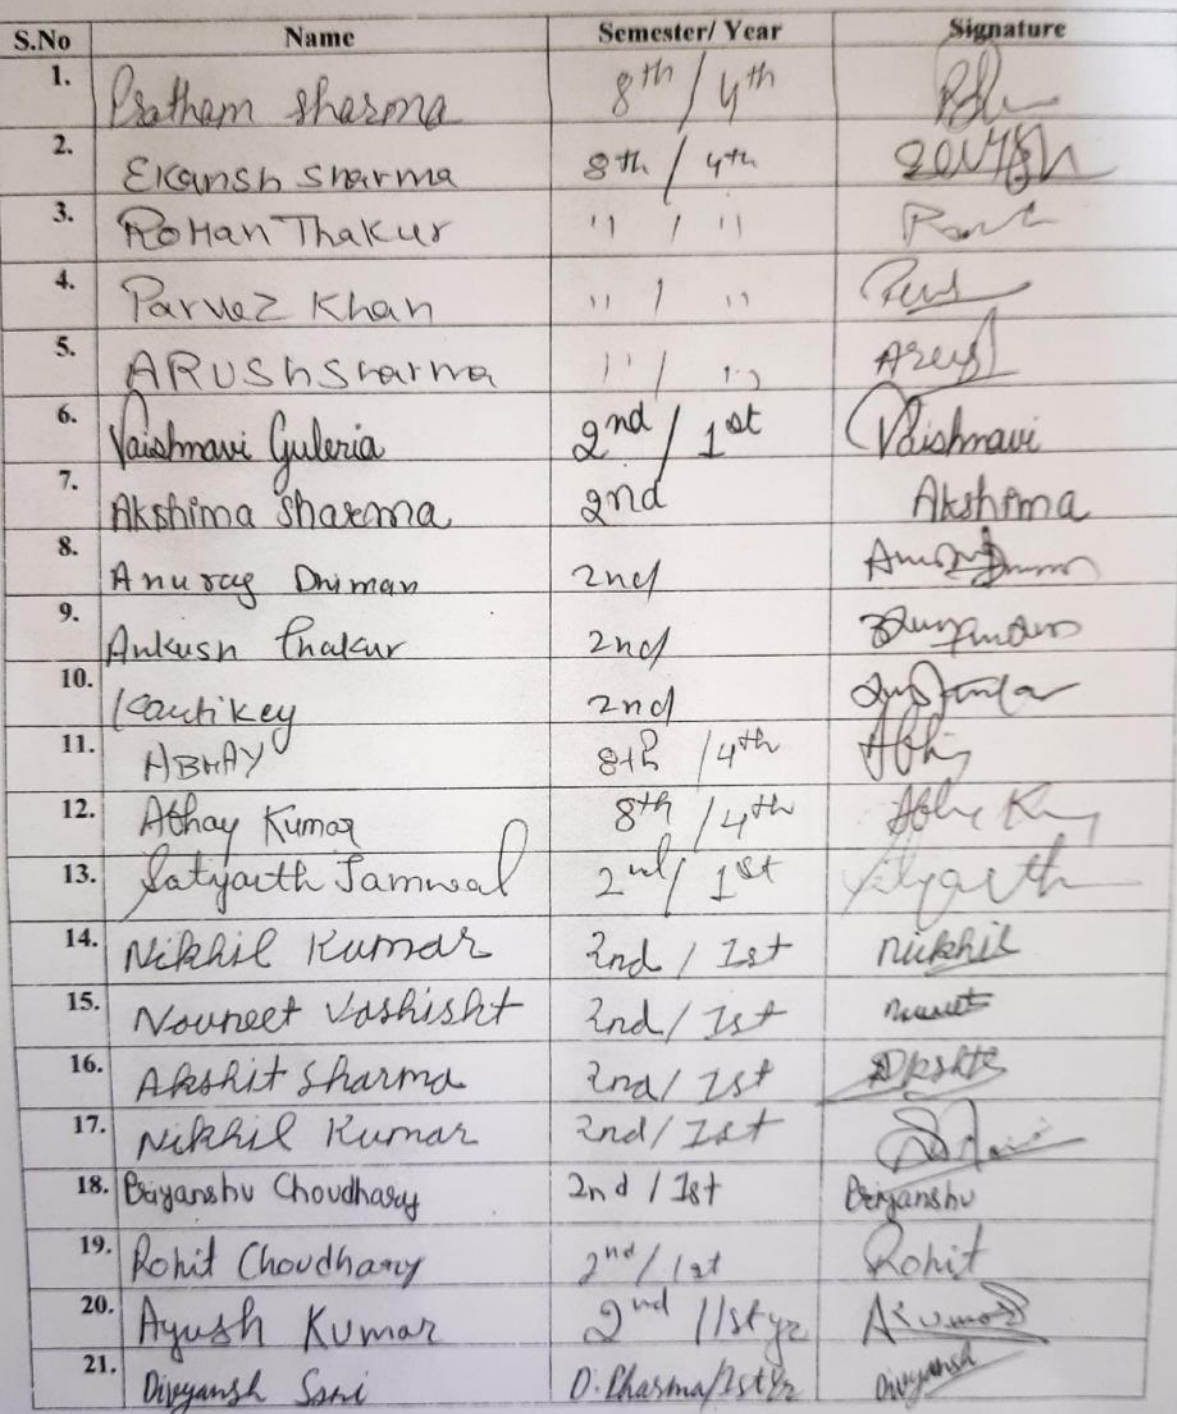 S.No Name Semester/ Year Signature
1. Pratham Sharma 8th / 4th
2. Ekansh Sharma 8th / 4th
3. Rohan Thakur " / "
4. Parvez Khan " / "
5. ARUSh Sharma " / " Arush
6. Vaishnavi Guleria 2nd / 1st Vaishnavi
7. Akshima Sharma 2nd Akshima
8. Anurag Dhiman 2nd
9. Ankush Thakur 2nd
10. Kartikey 2nd
11. ABHAY 8th / 4th
12. Abhay Kumar 8th / 4th
13. Satyarth Jamwal 2nd / 1st Satyarth
14. Nikhil Kumar 2nd / 1st Nikhil
15. Navneet Vashisht 2nd / 1st
16. Akshit Sharma 2nd / 1st
17. Nikhil Kumar 2nd / 1st
18. Priyanshu Choudhary 2nd / 1st Priyanshu
19. Rohit Choudhary 2nd / 1st Rohit
20. Ayush Kumar 2nd / 1st yr AKumar
21. Divyansh Soni D. Pharma/1st Yr Divyansh